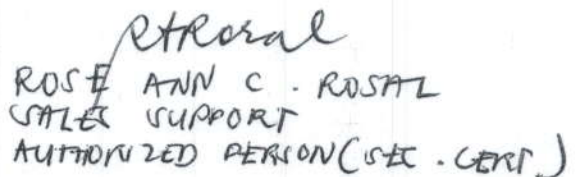 RARosal
ROSE ANN C. ROSAL
SALES SUPPORT
AUTHORIZED PERSON (SEC. CERT.)